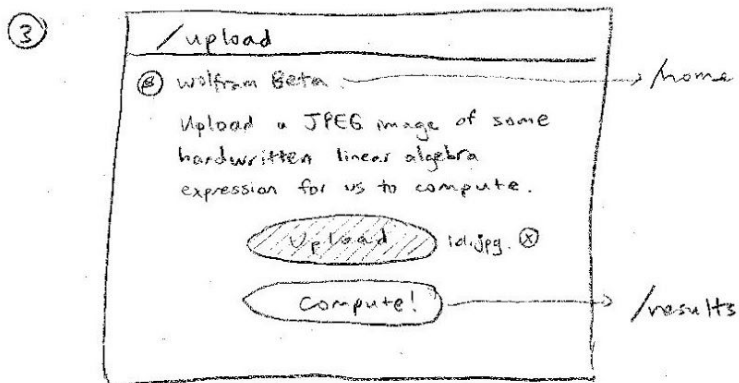 ③
/upload
Ⓑ Wolfram Beta.
/home
Upload a JPEG image of some
handwritten linear algebra
expression for us to compute.
Upload id.jpg. ⓧ
Compute!
/results